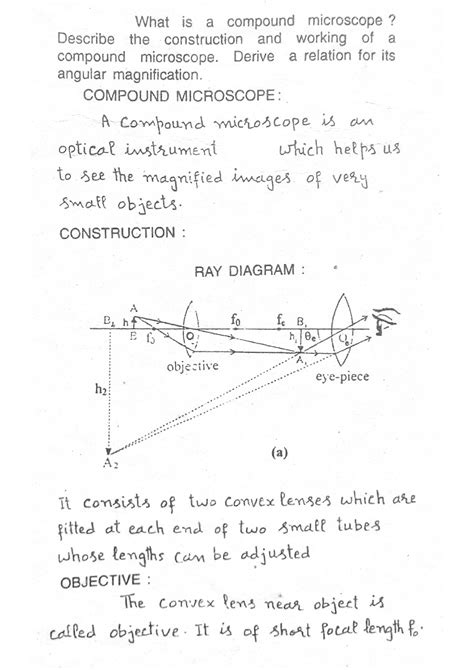 What is a compound microscope ?
Describe the construction and working of a
compound microscope. Derive a relation for its
angular magnification.
COMPOUND MICROSCOPE :
A compound microscope is an
optical instrument which helps us
to see the magnified images of very
small objects.
CONSTRUCTION :
RAY DIAGRAM :
A
B₂ h fo fe B₁
B fo O h₁ θe Oe
A₁
objective
eye-piece
h₂
A₂
(a)
It consists of two convex lenses which are
fitted at each end of two small tubes
whose lengths can be adjusted
OBJECTIVE :
The convex lens near object is
called objective. It is of short focal length fo.